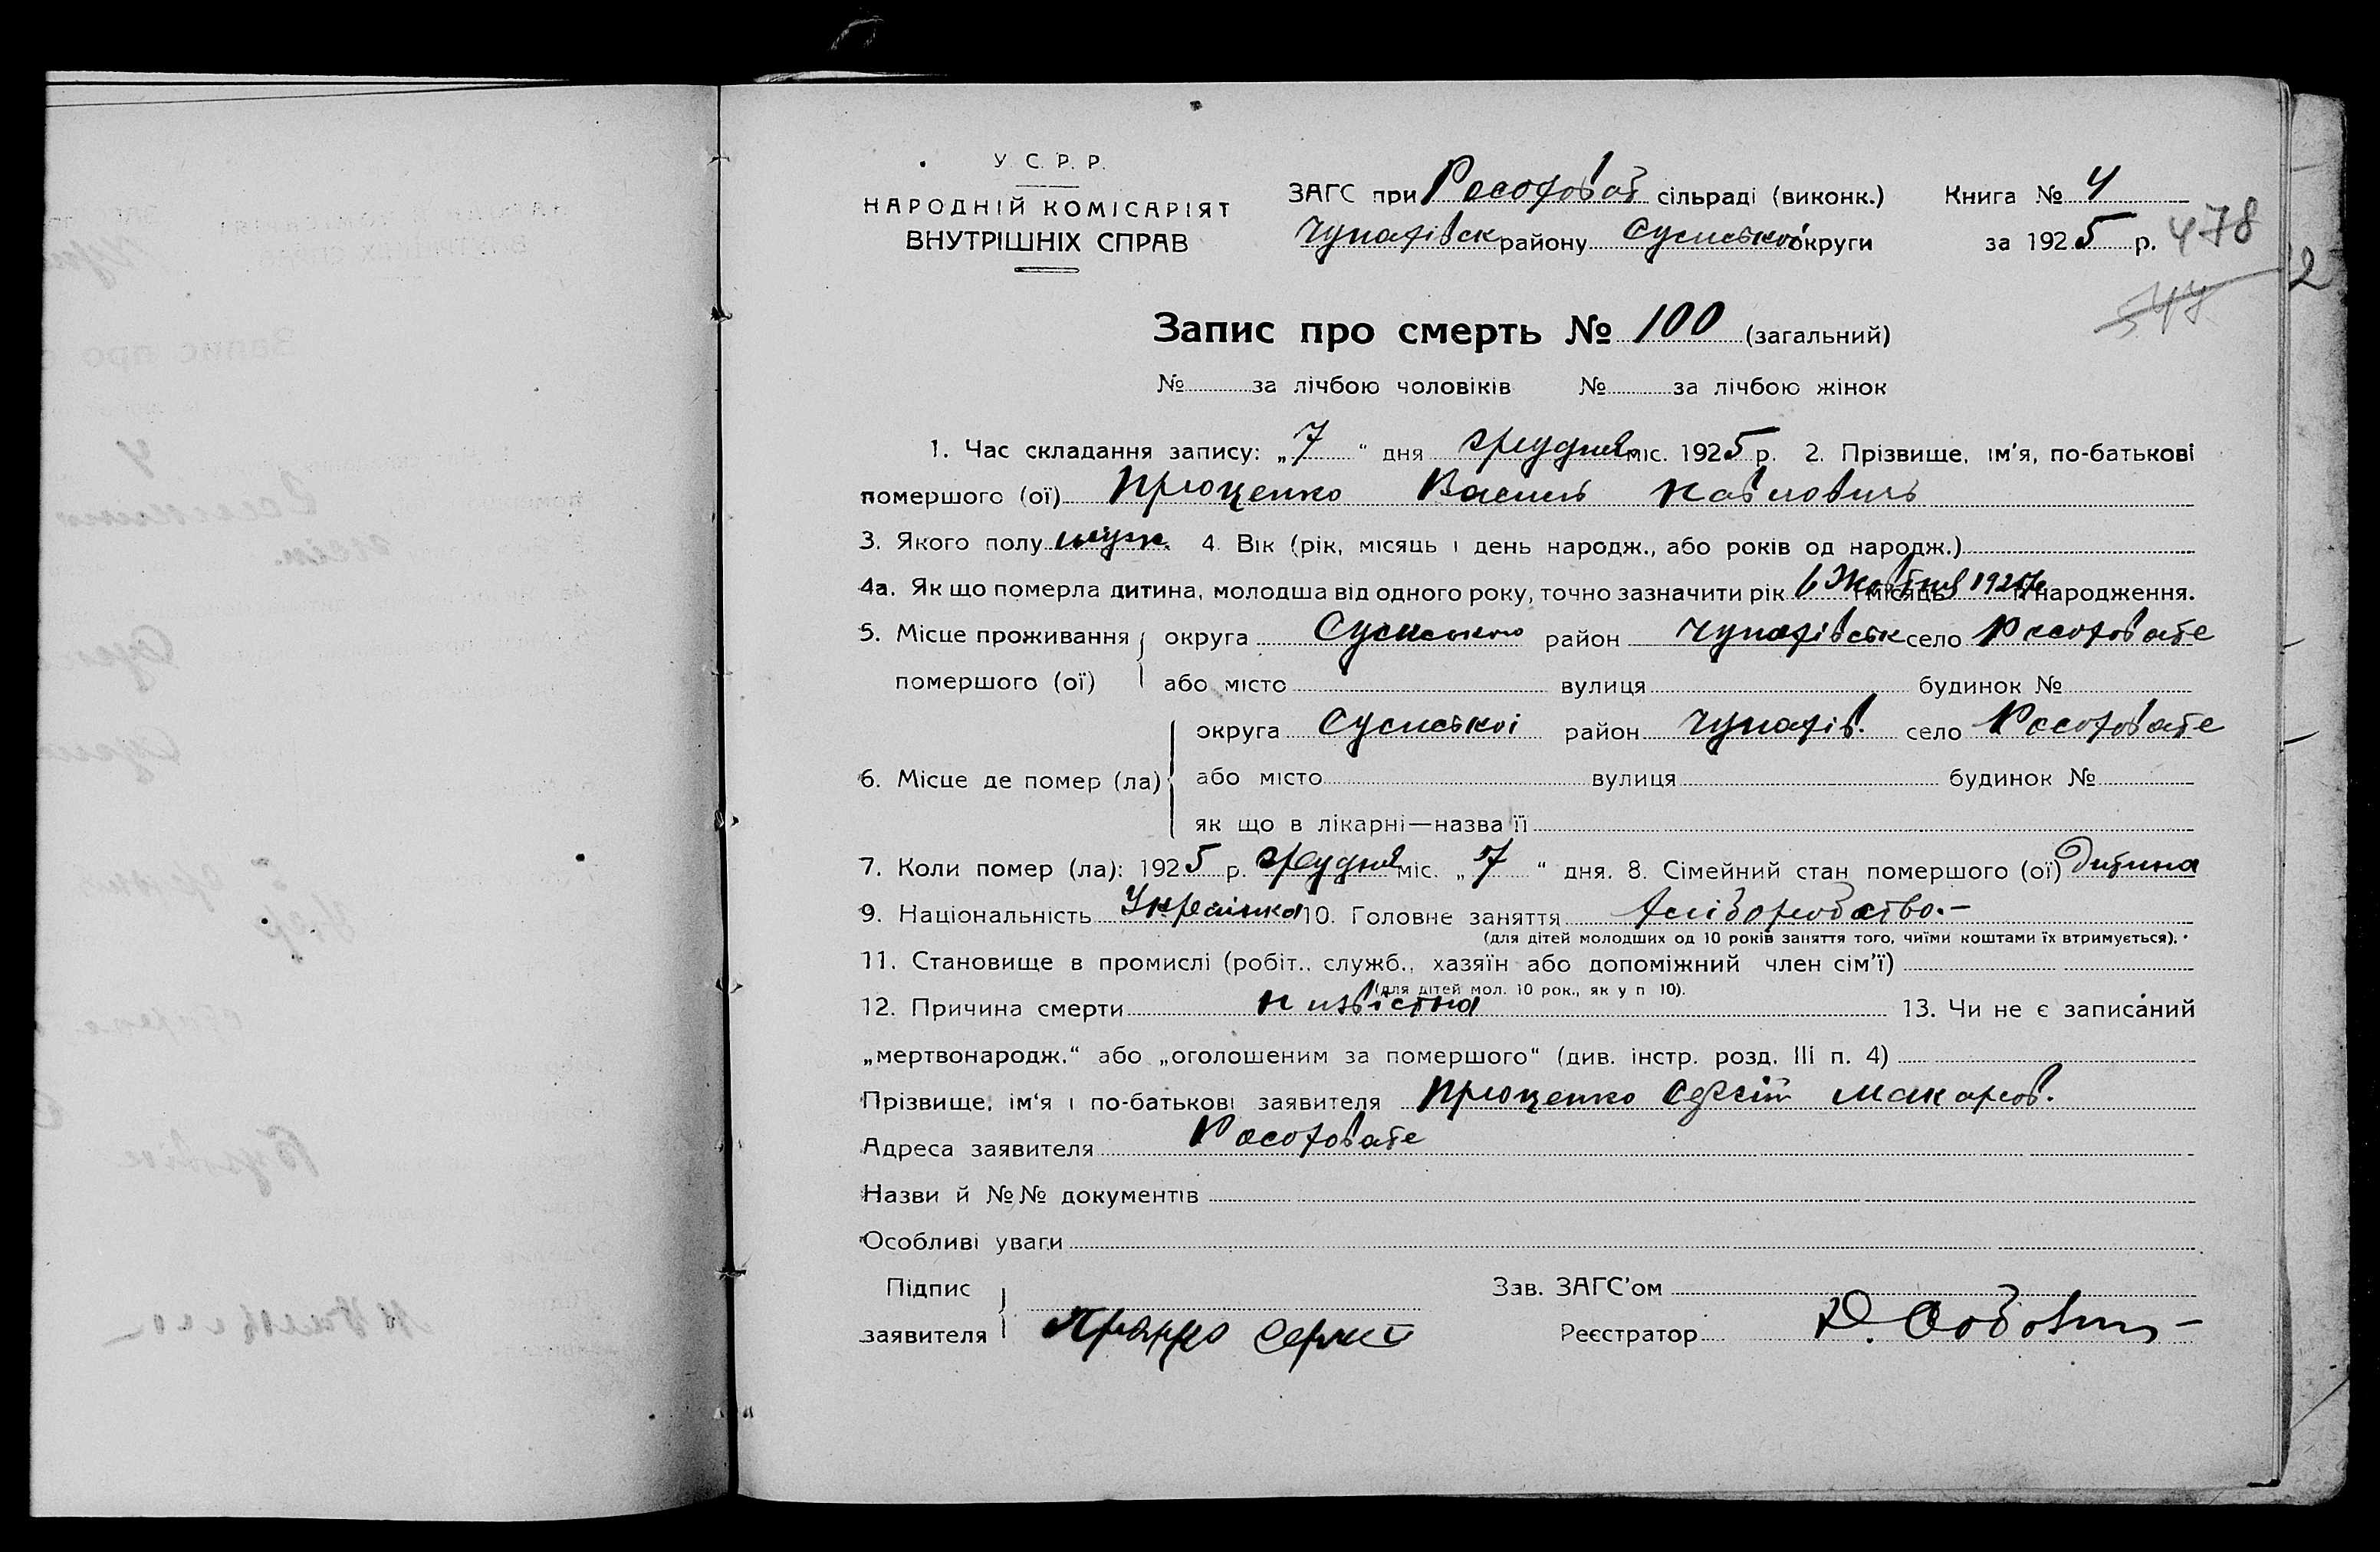 У. С. Р. Р.
НАРОДНІЙ КОМІСАРІЯТ
ВНУТРІШНІХ СПРАВ
ЗАГС при Росоховат сільраді (виконк.) Книга № 4
Чупахівск району Сумської округи за 1925 р. 478
Запис про смерть № 100 (загальний)
№ за лічбою чоловіків № за лічбою жінок
1. Час складання запису: „7“ дня грудня міс. 1925 р. 2. Прізвище, ім'я, по-батькові
помершого (ої) Проценко Василь Павлович
3. Якого полу муж. 4. Вік (рік, місяць і день народж., або років од народж.)
4а. Як що померла дитина, молодша від одного року, точно зазначити рік 6 Жовтня місяць народження.
5. Місце проживання округа Сумською район Чупахівськ село Росоховате
помершого (ої) або місто вулиця будинок №
округа Сумської район Чупахів. село Росоховате
6. Місце де помер (ла) або місто вулиця будинок №
як що в лікарні—назва її
7. Коли помер (ла): 1925 р. грудня міс. „7“ дня. 8. Сімейний стан помершого (ої) Дитина
9. Національність 10. Головне заняття
(для дітей молодших од 10 років заняття того, чиїми коштами їх втримується).
11. Становище в промислі (робіт., служб., хазяїн або допоміжний член сім'ї)
(для дітей мол. 10 рок., як у п 10).
12. Причина смерти 13. Чи не є записаний
„мертвонародж.“ або „оголошеним за помершого“ (див. інстр. розд. III п. 4)
Прізвище, ім'я і по-батькові заявителя Проценко Сергій Макаров.
Адреса заявителя Росоховате
Назви й №№ документів
Особливі уваги
Підпис Зав. ЗАГС'ом
заявителя Реєстратор